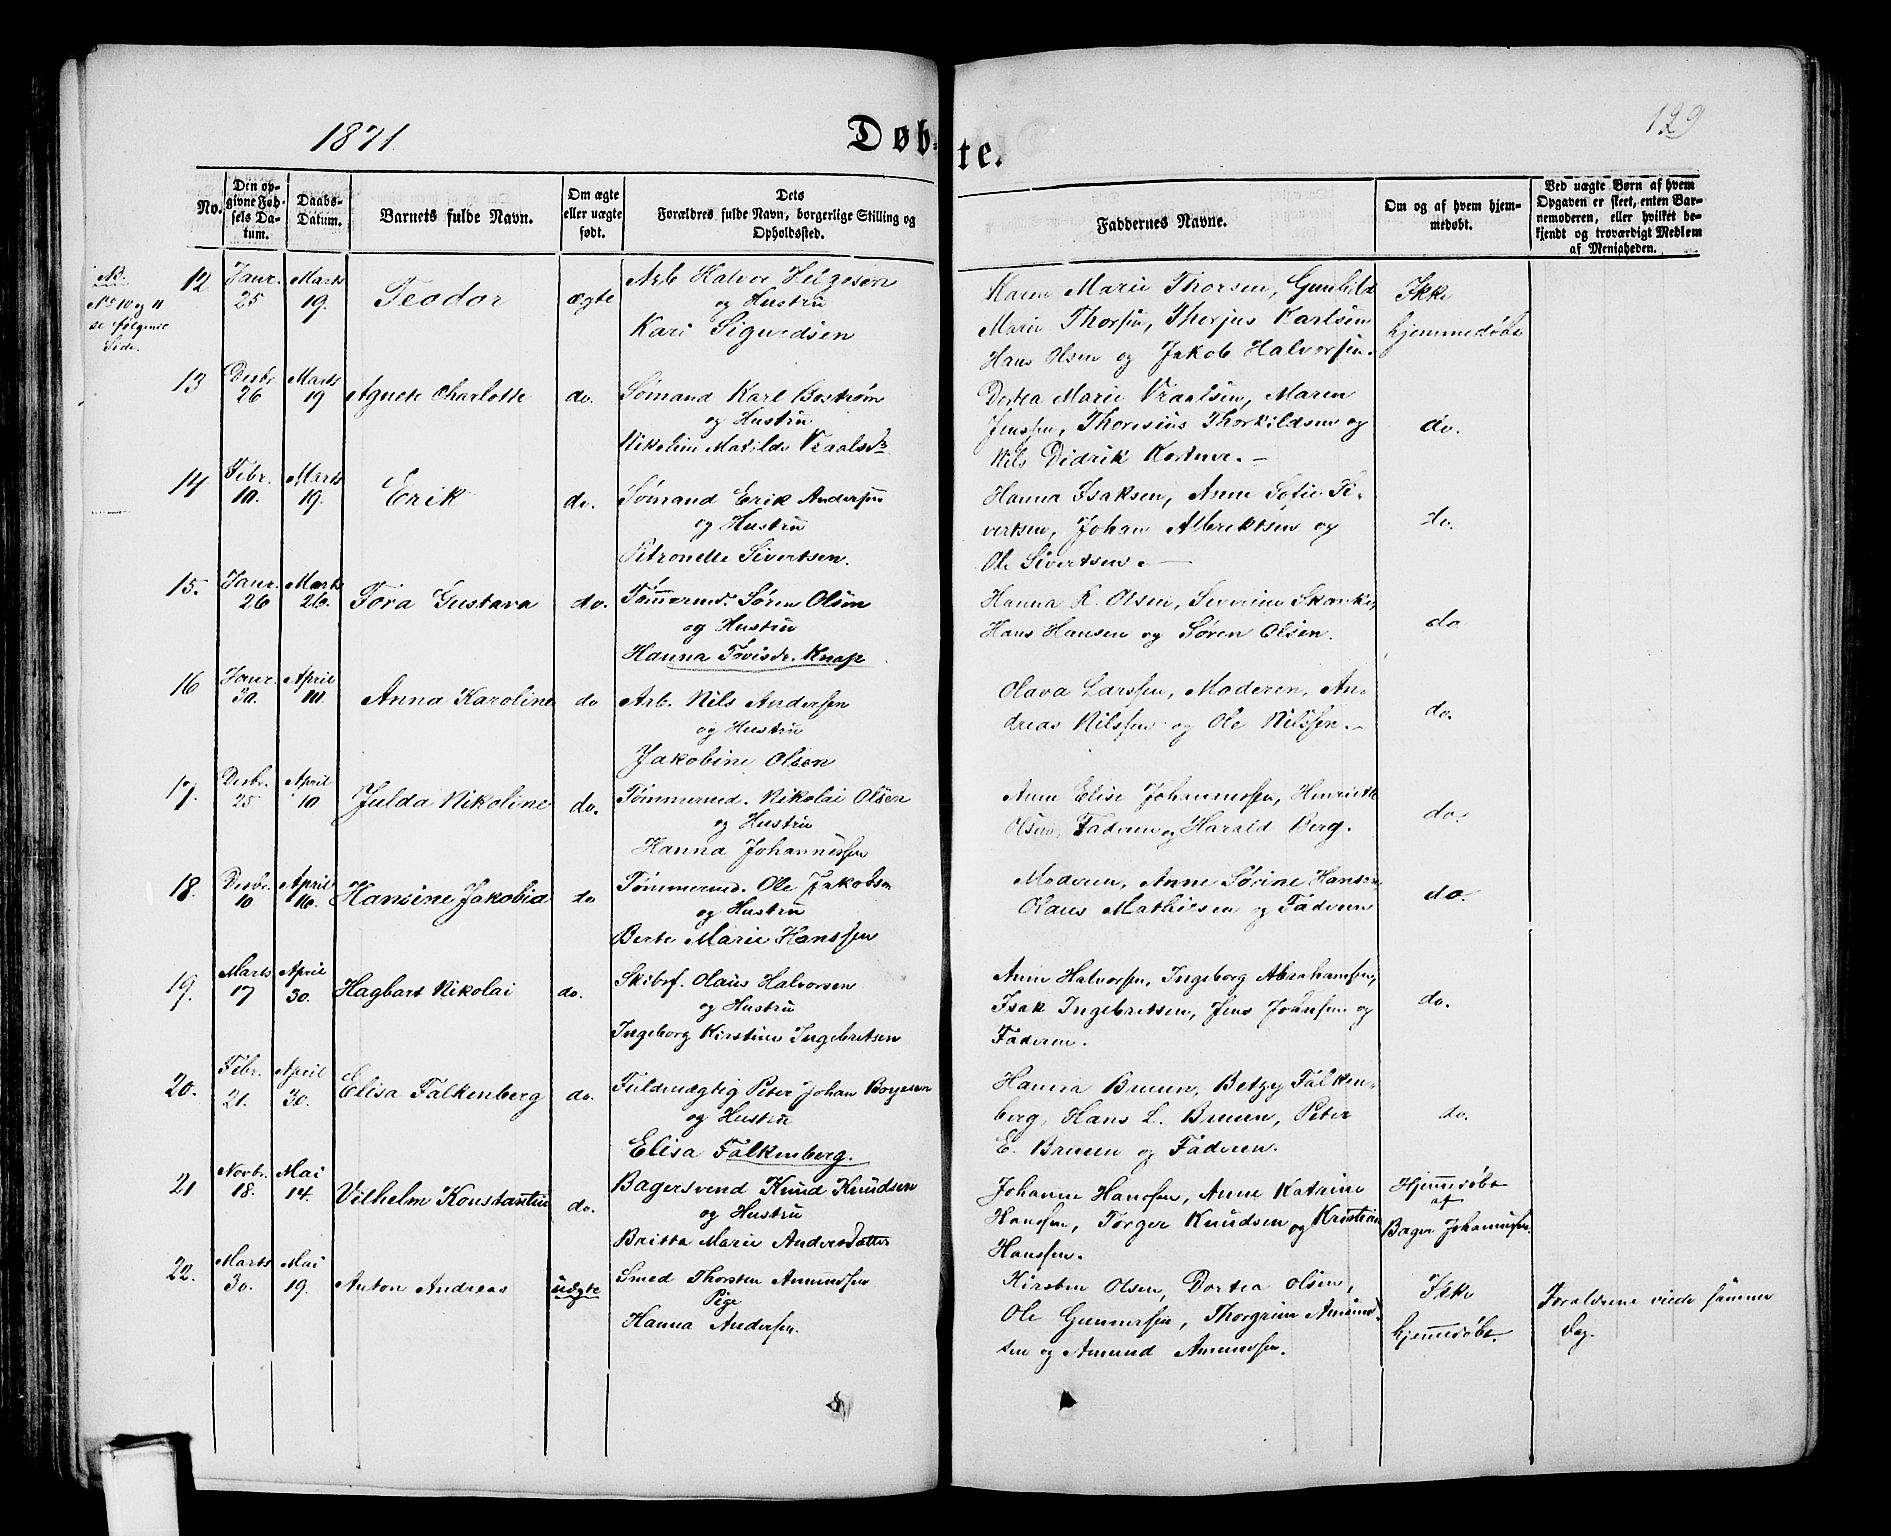 1871.
Døb-
te.
129
No.
Den op-
givne Fød-
sels Da-
tum.
Daabs-
Datum.
Barnets fulde Navn.
Om ægte
eller uægte
født.
Dets
Forældres fulde Navn, borgerlige Stilling og
Opholdssted.
Faddernes Navne.
Om og af hvem hjem-
medøbt.
Ved uægte Børn af hvem
Opgaven er skeet, enten Bar-
nemoderen, eller hvilket be-
kjendt og troværdigt Medlem
af Menigheden.
NB.
No 10 og 11
se følgende
Side.
12 Janr. 25 Marts 19. Teodor ægte
Arb Halvor Helgesen
og Hustru
Kari Sigurdsen
Karen Marie Thorsen, Gunhild
Marie Thorsen, Therjus Karlsen
Hans Olsen og Jakob Halvorsen.
Ikke
hjemmedøbt
13 Desbr. 26 Marts 19 Agnete Charlotte do.
Sømand Karl Bostrøm
og Hustru
Nikoline Matilde Vraalsdr
Dortea Marie Vraalsen, Maren
Jenssen, Thoresius Thorkildsen og
Nils Didrik
do.
14 Febr. 10. Marts 19. Erik do.
Sømand Erik Andersen
og Hustru
Petronelle Sivertsen.
Hanna Isaksen, Anne Sofie Si-
vertsen, Johan Albrektsen og
Ole Sivertsen. —
do.
15. Janr. 26 Marts 26. Tora Gustava do.
Tømmermd. Søren Olsen
og Hustru
Hanna Tovisdr. Knap
Hanna K. Olsen, Severine
Hans Hansen og Søren Olsen.
do
16 Janr 30. April 10. Anna Karoline do
Arb. Nils Andersen
og Hustru
Jakobine Olsen
Olava Larssen, Moderen, An-
dreas Nilssen og Ole Nilssen. —
do.
17. Desbr. 25 April 10 Julda Nikoline do.
Tømmermd. Nikolai Olsen
og Hustru
Hanna Johannessen
Anne Elise Johannessen, Henriette
Olsen, Faderen og Harald Berg.
do.
18. Desbr. 10 April 16. Hansine Jakobia do
Tømmermd. Ole Jakobsen
og Hustru
Berte Marie Hanssen
Moderen, Anne Sørine Hansen,
Olaus Mathisen og Faderen
do.
19. Marts 17 April 30. Hagbart Nikolai do.
Skibsf. Olaus Halvorsen
og Hustru
Ingeborg Kirstine Ingebretsen
Anne Halvorsen, Ingeborg Abrahamsen,
Isak Ingebretsen, Jens Johnsen og
Faderen.
do.
20. Febr. 21. April 30. Elisa Falkenberg do.
Fuldmægtig Peter Johan Borgesen
og Hustru
Elisa Falkenberg.
Hanna Bruun, Betzy Falken-
berg, Hans L. Bruun, Peter
E. Bruun og Faderen.
do.
21 Novbr. 18. Mai 14. Vilhelm Konstantin do.
Bagersvend Knud Knudsen
og Hustru
Britta Marie Andersdatter
Johanne Hanssen, Anne Katrine
Hanssen, Torger Knudsen og Kristian
Hanssen.
Hjemmedøbt
af
Bager Johannessen.
22. Marts 30. Mai 19. Anton Andreas uægte
Smed Thorsten Amundsen
Pige
Hanna Andersen.
Kirsten Olsen, Dortea Olsen,
Ole Gunnersen, Thorgrim Amund-
sen og Amund Amundsen.
Ikke
hjemmedøbt.
Forældrene viede samme
Dag.